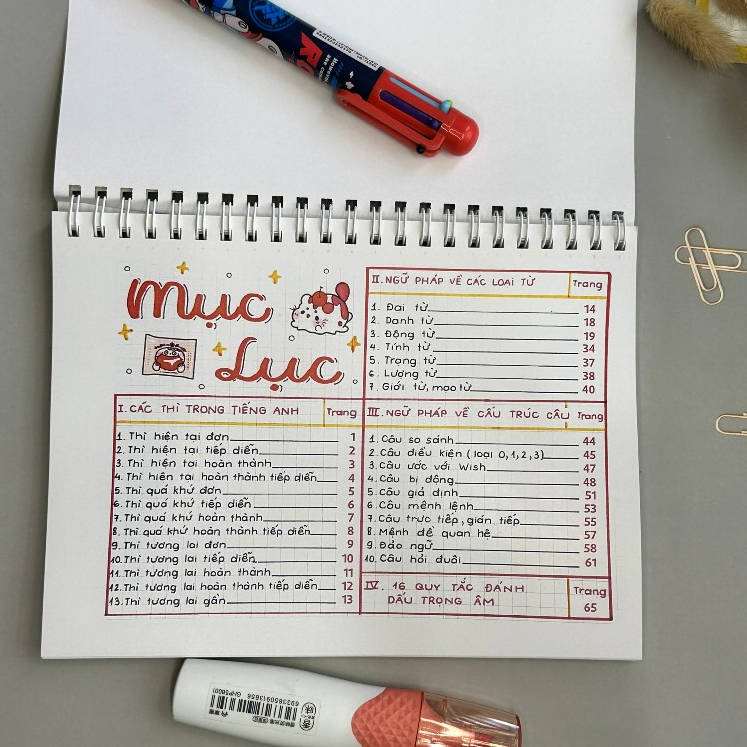 Mục
Lục
I. CÁC THÌ TRONG TIẾNG ANH Trang
1. Thì hiện tại đơn 1
2. Thì hiện tại tiếp diễn 2
3. Thì hiện tại hoàn thành 3
4. Thì hiện tại hoàn thành tiếp diễn 4
5. Thì quá khứ đơn 5
6. Thì quá khứ tiếp diễn 6
7. Thì quá khứ hoàn thành 7
8. Thì quá khứ hoàn thành tiếp diễn 8
9. Thì tương lai đơn 9
10. Thì tương lai tiếp diễn 10
11. Thì tương lai hoàn thành 11
12. Thì tương lai hoàn thành tiếp diễn 12
13. Thì tương lai gần 13
II. NGỮ PHÁP VỀ CÁC LOẠI TỪ Trang
1. Đại từ 14
2. Danh từ 18
3. Động từ 19
4. Tính từ 34
5. Trạng từ 37
6. Lượng từ 38
7. Giới từ, mạo từ 40
III. NGỮ PHÁP VỀ CẤU TRÚC CÂU Trang
1. Câu so sánh 44
2. Câu điều kiện (loại 0, 1, 2, 3) 45
3. Câu ước với Wish 47
4. Câu bị động 48
5. Câu giả định 51
6. Câu mệnh lệnh 53
7. Câu trực tiếp, gián tiếp 55
8. Mệnh đề quan hệ 57
9. Đảo ngữ 58
10. Câu hỏi đuôi 61
IV. 16 QUY TẮC ĐÁNH Trang
DẤU TRỌNG ÂM 65
6933650913656